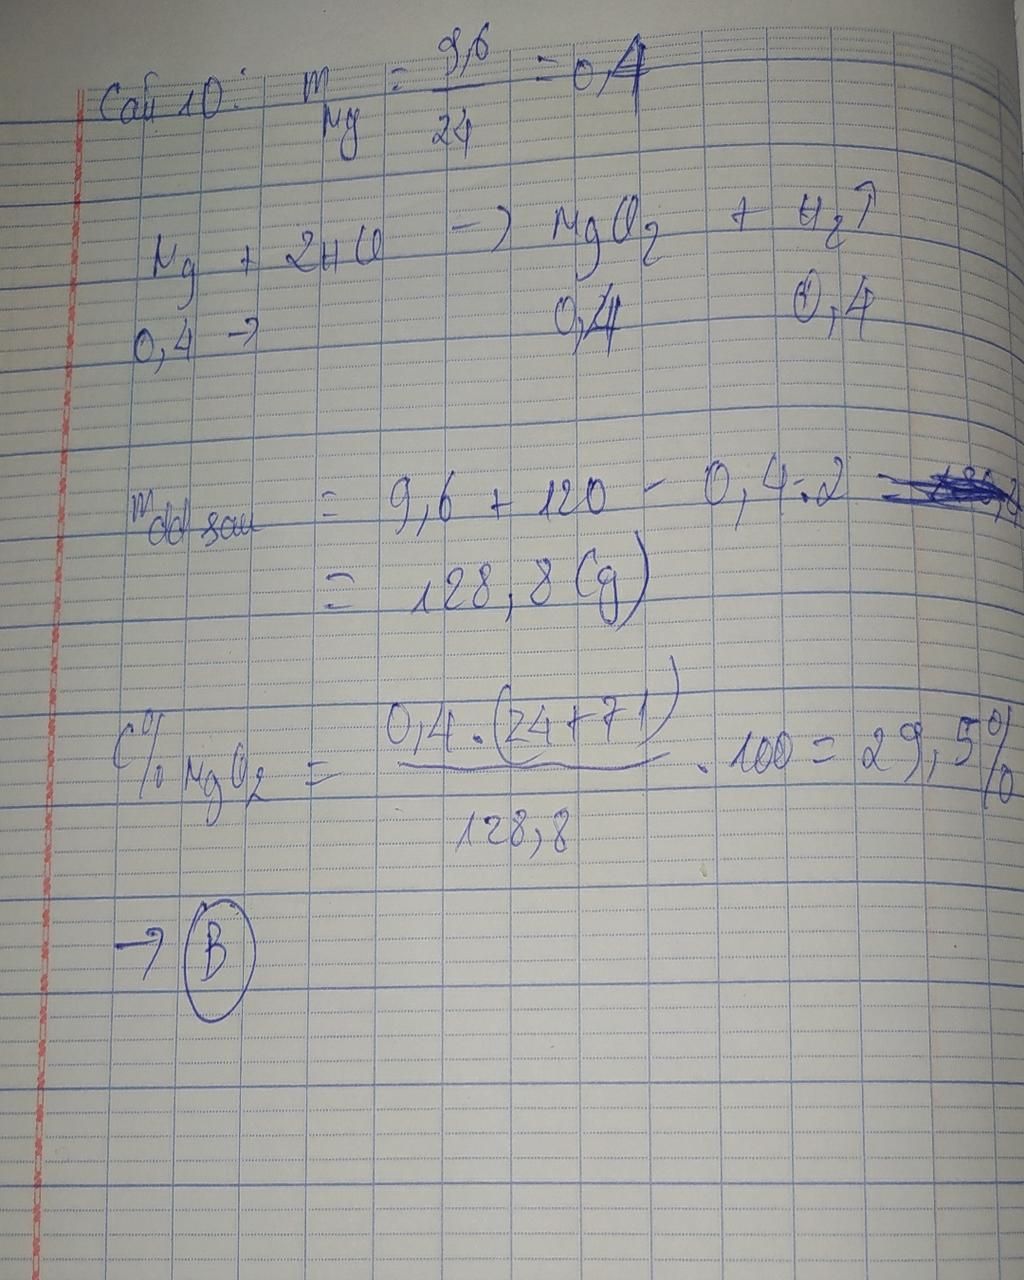 Câu 10: n Mg = 9,6 / 24 = 0,4
Mg + 2HCl → MgCl2 + H2↑
0,4 → 0,4 0,4
m dd sau = 9,6 + 120 - 0,4.2 =
= 128,8 (g)
C% MgCl2 = 0,4.(24+71) / 128,8 . 100 = 29,5%
→ B